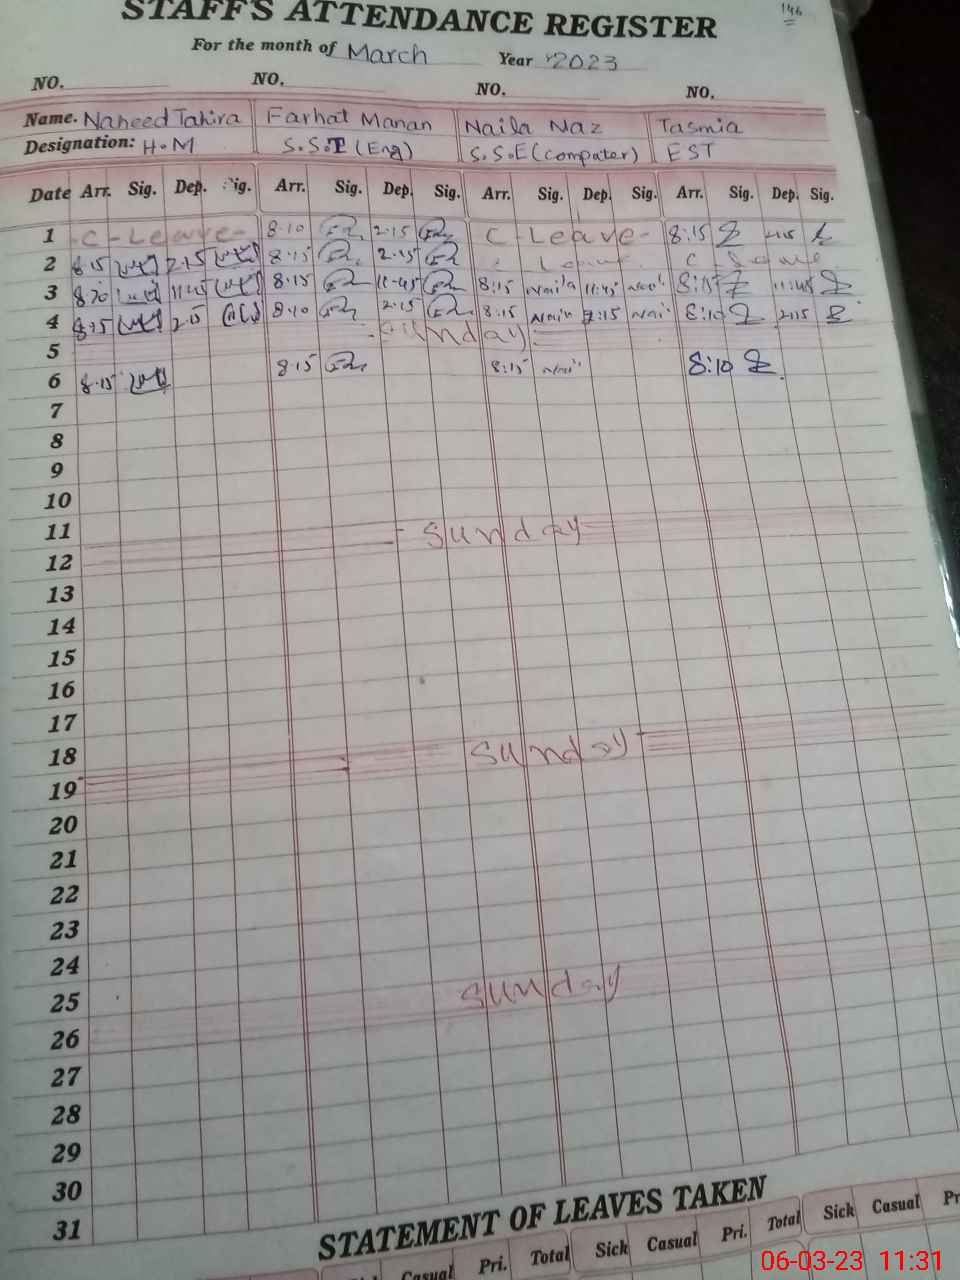 146
STAFF'S ATTENDANCE REGISTER
For the month of March Year 2023
NO. NO. NO. NO.
Name. Naheed Tahira Farhat Manan Naila Naz Tasmia
Designation: H.M S.S.T (Eng) S.S.E (Computer) EST
Date Arr. Sig. Dep. Sig. Arr. Sig. Dep. Sig. Arr. Sig. Dep. Sig. Arr. Sig. Dep. Sig.
1 C-Leave- 8.10 2.15 C-Leave- 8:15 2:15
2 8.15 2.15 8.15 2.15 Leave C
3 8.20 11.45 8.15 11.45 8:15 Naila 11:45 8:15 11:45
4 8.15 8.10 2.15 8:15 2:15 8:10 2:15
Sunday
5
6 8.15 8.15 8:15 8:10
7
8
9
10
11 Sunday
12
13
14
15
16
17
18 Sunday
19
20
21
22
23
24
25 Sunday
26
27
28
29
30
31
STATEMENT OF LEAVES TAKEN
Casual Pri. Total Sick Casual Pri. Total Sick Casual
06-03-23 11:31